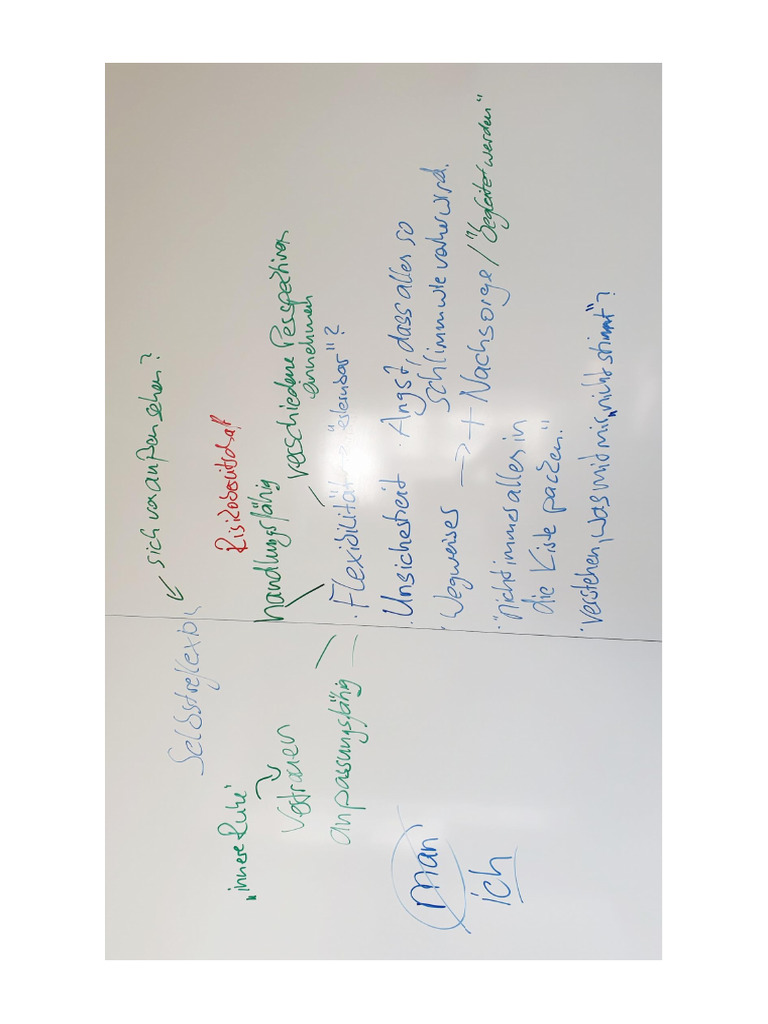 Selbstreflexion
sich von außen sehen?
"innere Ruhe"
Vertrauen
anpassungsfähig
Risikobereitschaft
handlungsfähig
verschiedene Perspektiven
annehmen
· Flexibilität "erlernbar"?
· Unsicherheit · Angst, dass alles so
schlimm wie vorher wird.
· Wegweiser → + Nachsorge / "Begleiter werden"
· "nicht immer alles in
die Kiste packen."
· verstehen, was mit mir „nicht stimmt"?
man
ich